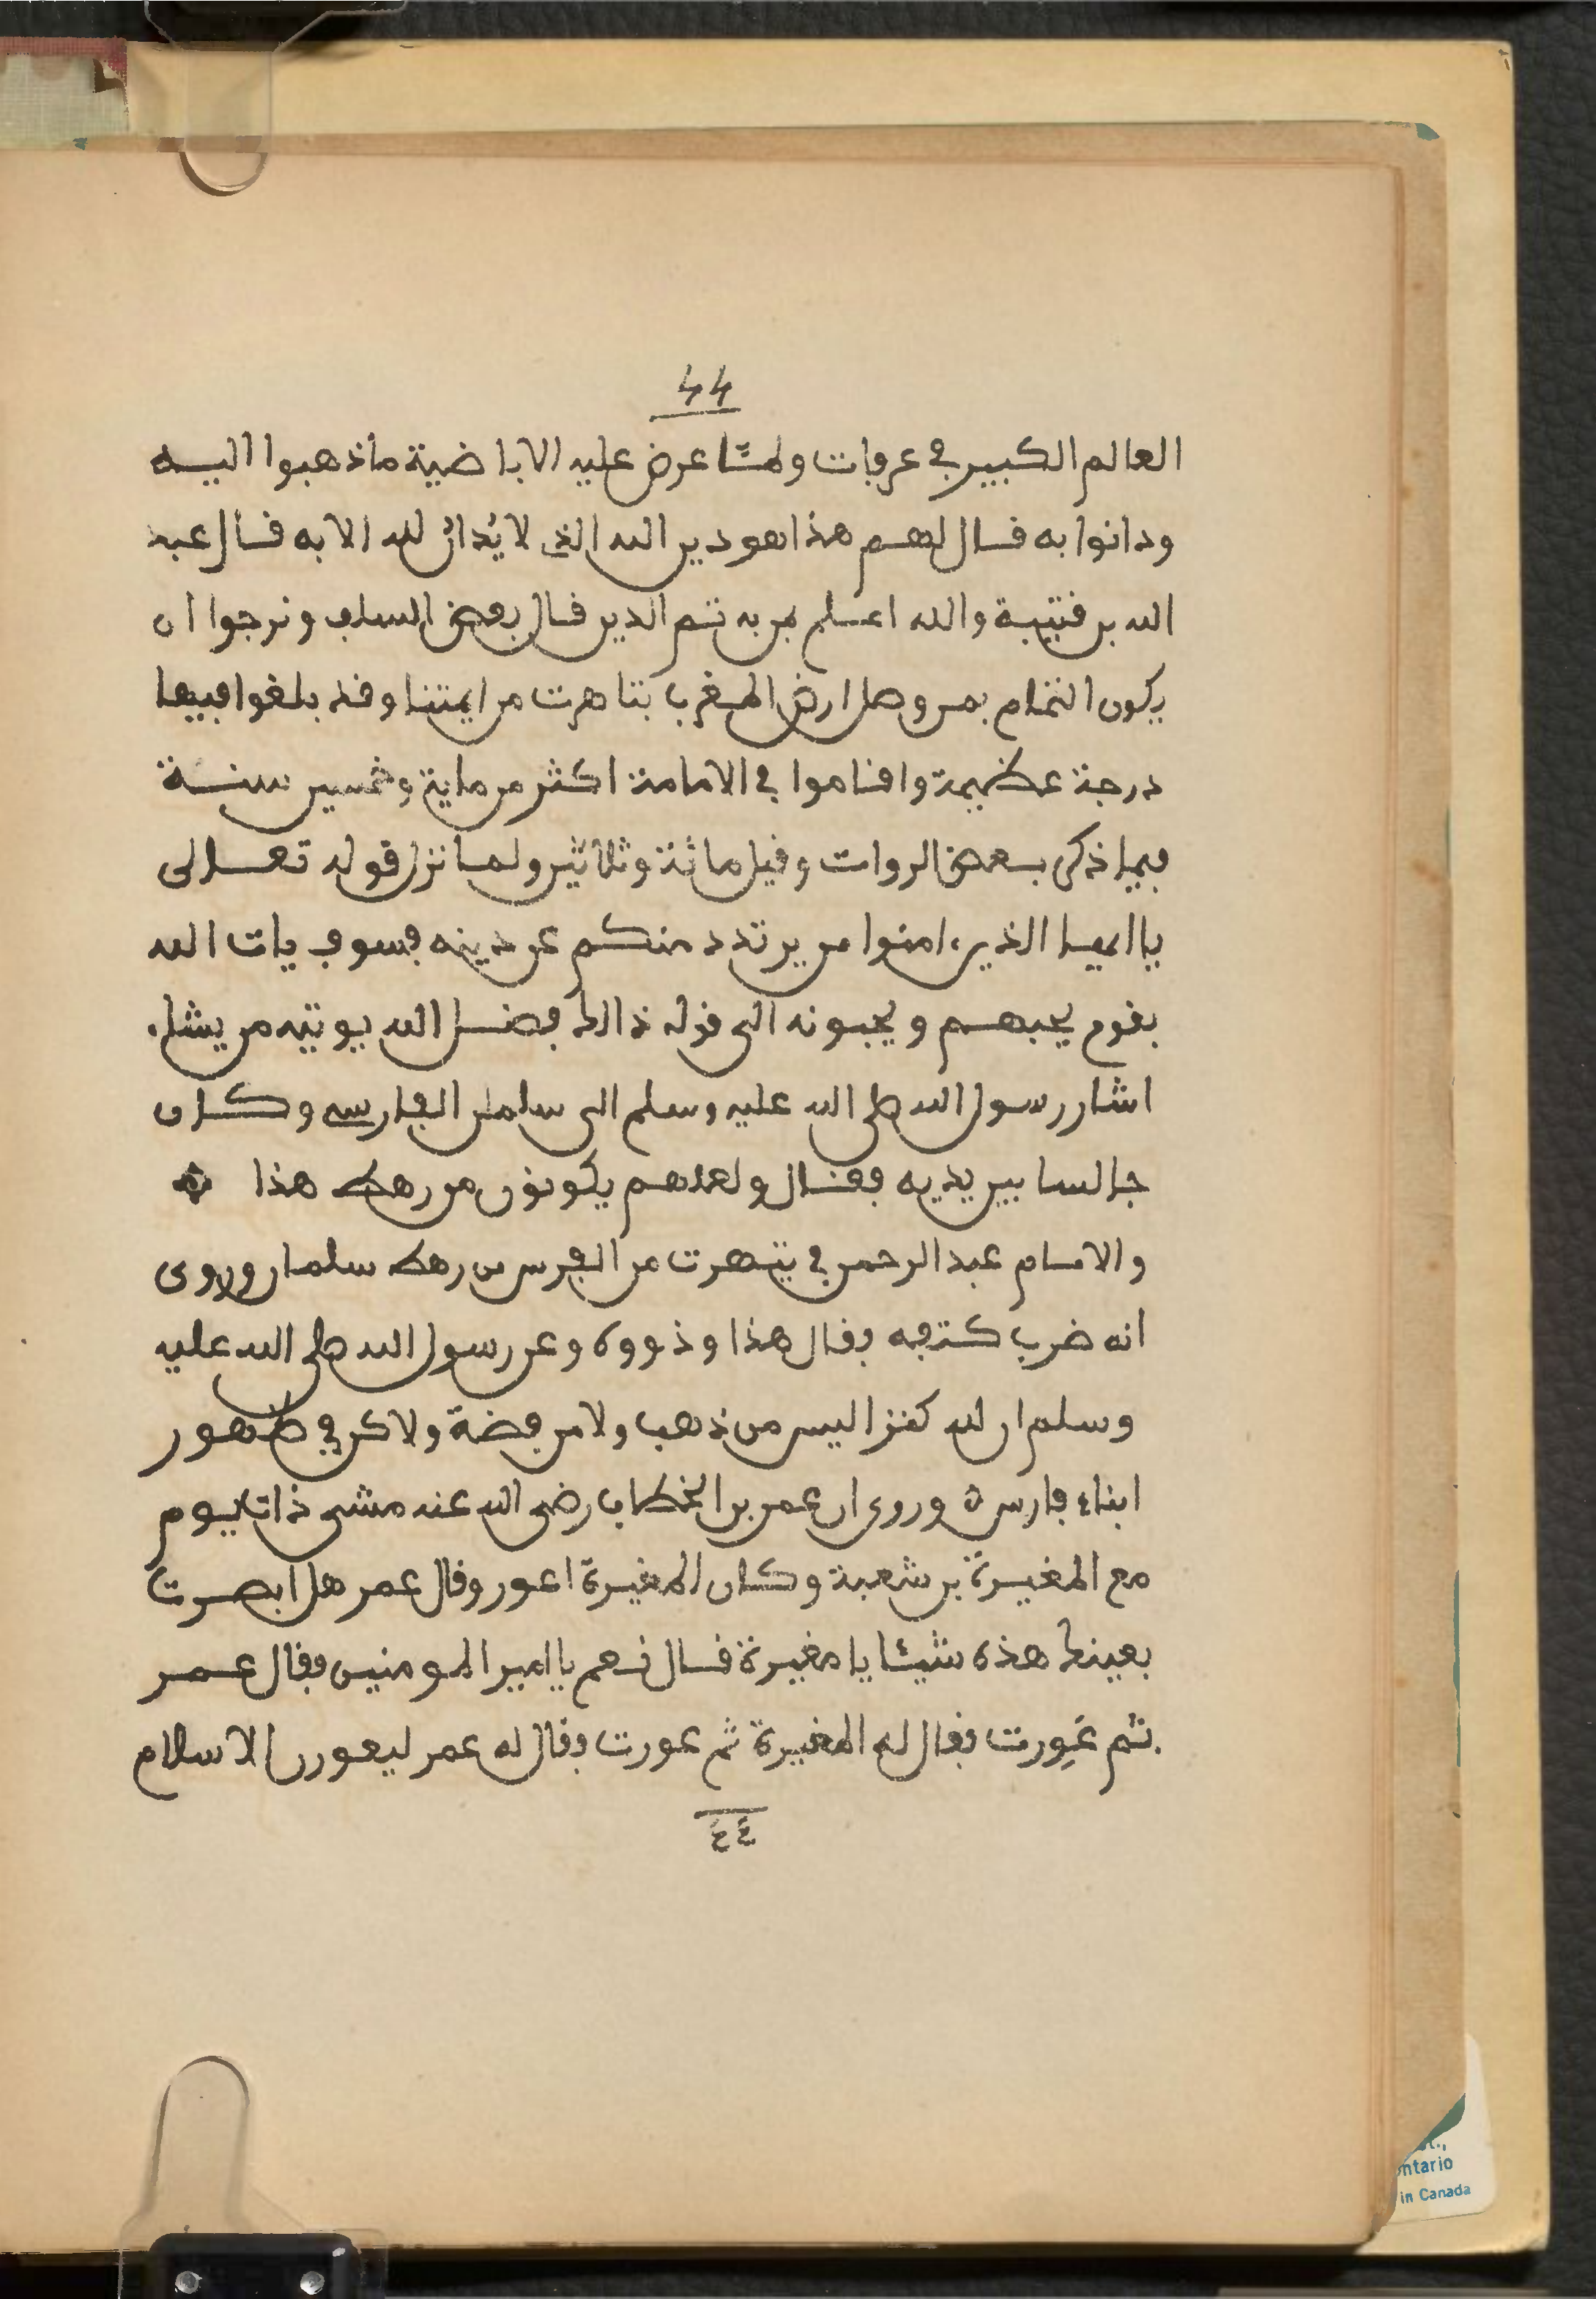 44
العالم الكبير في عرفات ولمّا عرض عليه الاباضية ماذهبوا اليه
ودانوا به قال لهم هذا هو دين الله الذي لا يُدانُ لله الا به قال عبد
الله بن قتيبة والله اعلم بمن به تتم الدين قال بعض السلف ونرجوا ان
يكون التمام بمن وصل ارض المغرب بتاهرت من ايمتنا وقد بلغوا فيها
درجة عظيمة واقاموا في الامامة اكثر من ماية وخمسين سنة
فيما ذكر بعض الروات وقيل مائة وثلاثين ولما نزل قوله تعالى
يا ايها الذين ءامنوا من يرتدد منكم عن دينه فسوف يات الله
بقوم يحبهم ويحبونه الى قوله ذالك فضل الله يوتيه من يشاء
اشار رسول الله صلى الله عليه وسلم الى سلمان الفارسي وكان
جالسا بين يديه فقال ولعلهم يكونون من رهط هذا ۞
والامام عبد الرحمن في تيهرت من الفرس من رهط سلمان وروى
انه ضرب كتفه فقال هذا وذووه وعن رسول الله صلى الله عليه
وسلم ان لله كنزا ليس من ذهب ولا من فضة ولاكن في ظهور
ابناء فارس ۞ وروى ان عمر بن الخطاب رضي الله عنه مشى ذات يوم
مع المغيرة بن شعبة وكان المغيرة اعور وقال عمر هل ابصرت
بعينك هذه شيئا يا مغيرة قال نعم يا امير المومنين فقال عمر
ثم عَوِرت فقال له المغيرة ثم عورت فقال له عمر ليعورن الاسلام
٤٤
ntario
in Canada